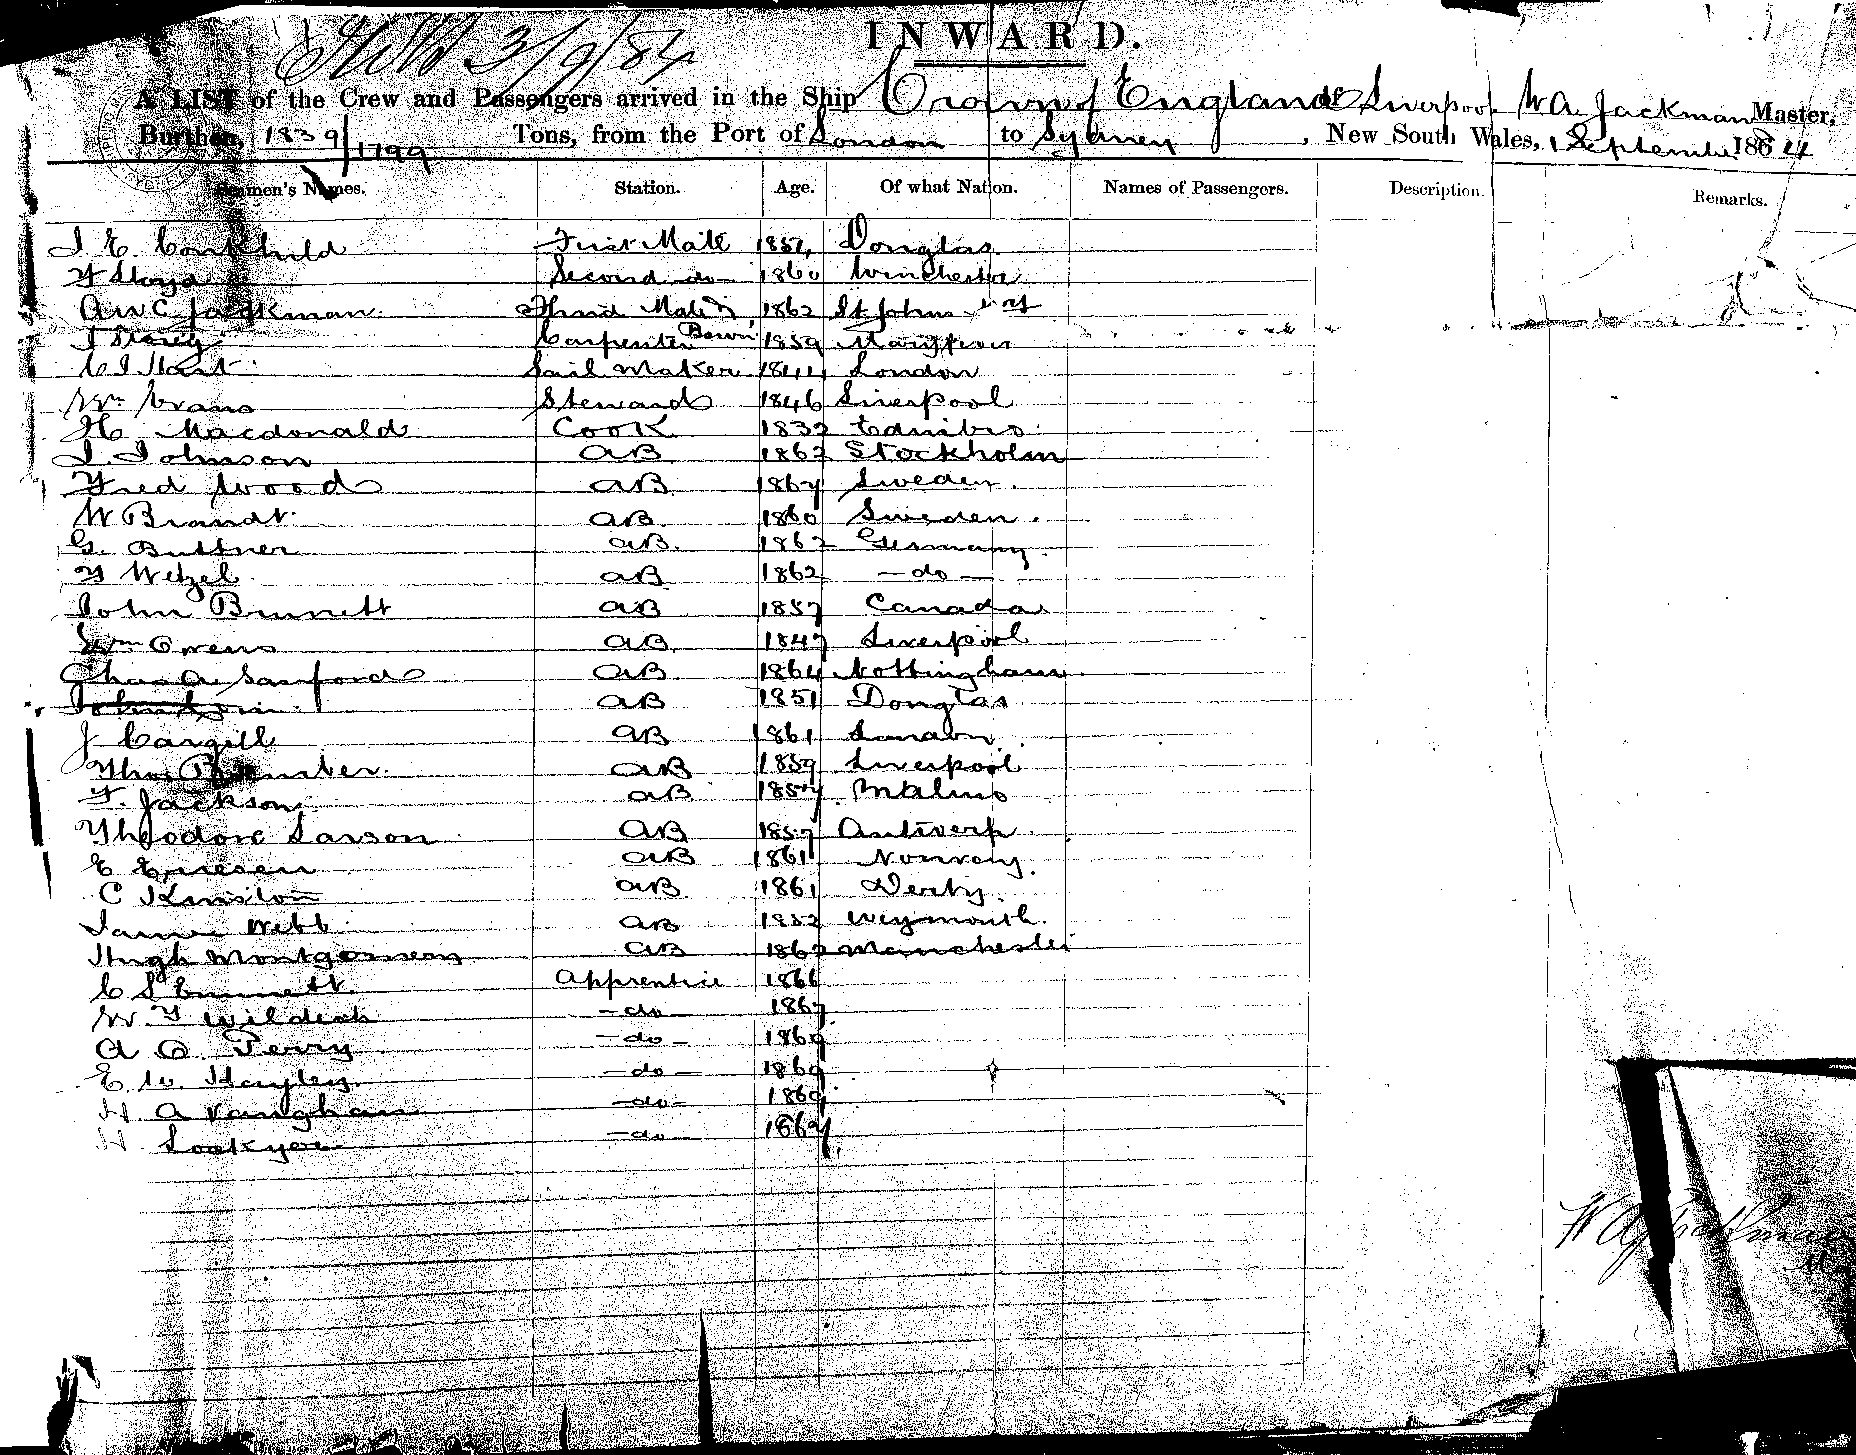 3/9/84
INWARD.
A LIST of the Crew and Passengers arrived in the Ship Crown of England of Liverpool W A Jackman Master,
Burthen, 1839/1799 Tons, from the Port of London to Sydney, New South Wales, 1 September 1884
Seamen's Names. Station. Age. Of what Nation. Names of Passengers. Description. Remarks.
J. E. First Mate 1851 Douglas
F Lloyd Second do 1860 Winchester
A W C Jackman Third Mate 1862 St Johns
J Storey Carpenter 1859 Maryport
C J Hart Sail Maker 1844 London
Wm Evans Steward 1846 Liverpool
H Macdonald Cook 1832
J. Johnson AB 1862 Stockholm
Fred Wood AB 1864 Sweden
W Brandt AB 1860 Sweden
G. Buttner AB 1862 Germany
F Wetzel AB 1862 - do -
John Brunett AB 1857 Canada
Wm Owens AB 1847 Liverpool
Chas A Sanford AB 1864 Nottingham
John AB 1851 Douglas
J Cargill AB 1861 London
Thos AB 1859 Liverpool
F. Jackson AB 1857 Malmo
Theodore Larson AB 1857 Antwerp
E Ericsen AB 1861 Norway
C Kniston AB 1861 Derby
James Webb AB 1852 Weymouth
Hugh Montgomery AB 1862 Manchester
C S Emmett Apprentice 1866
W F Wildish - do - 1867
A O Perry - do - 1869
E W Hayley - do - 1869
H A Vaughan - do - 1869
H Lookyer - do - 1869
W A Jackman